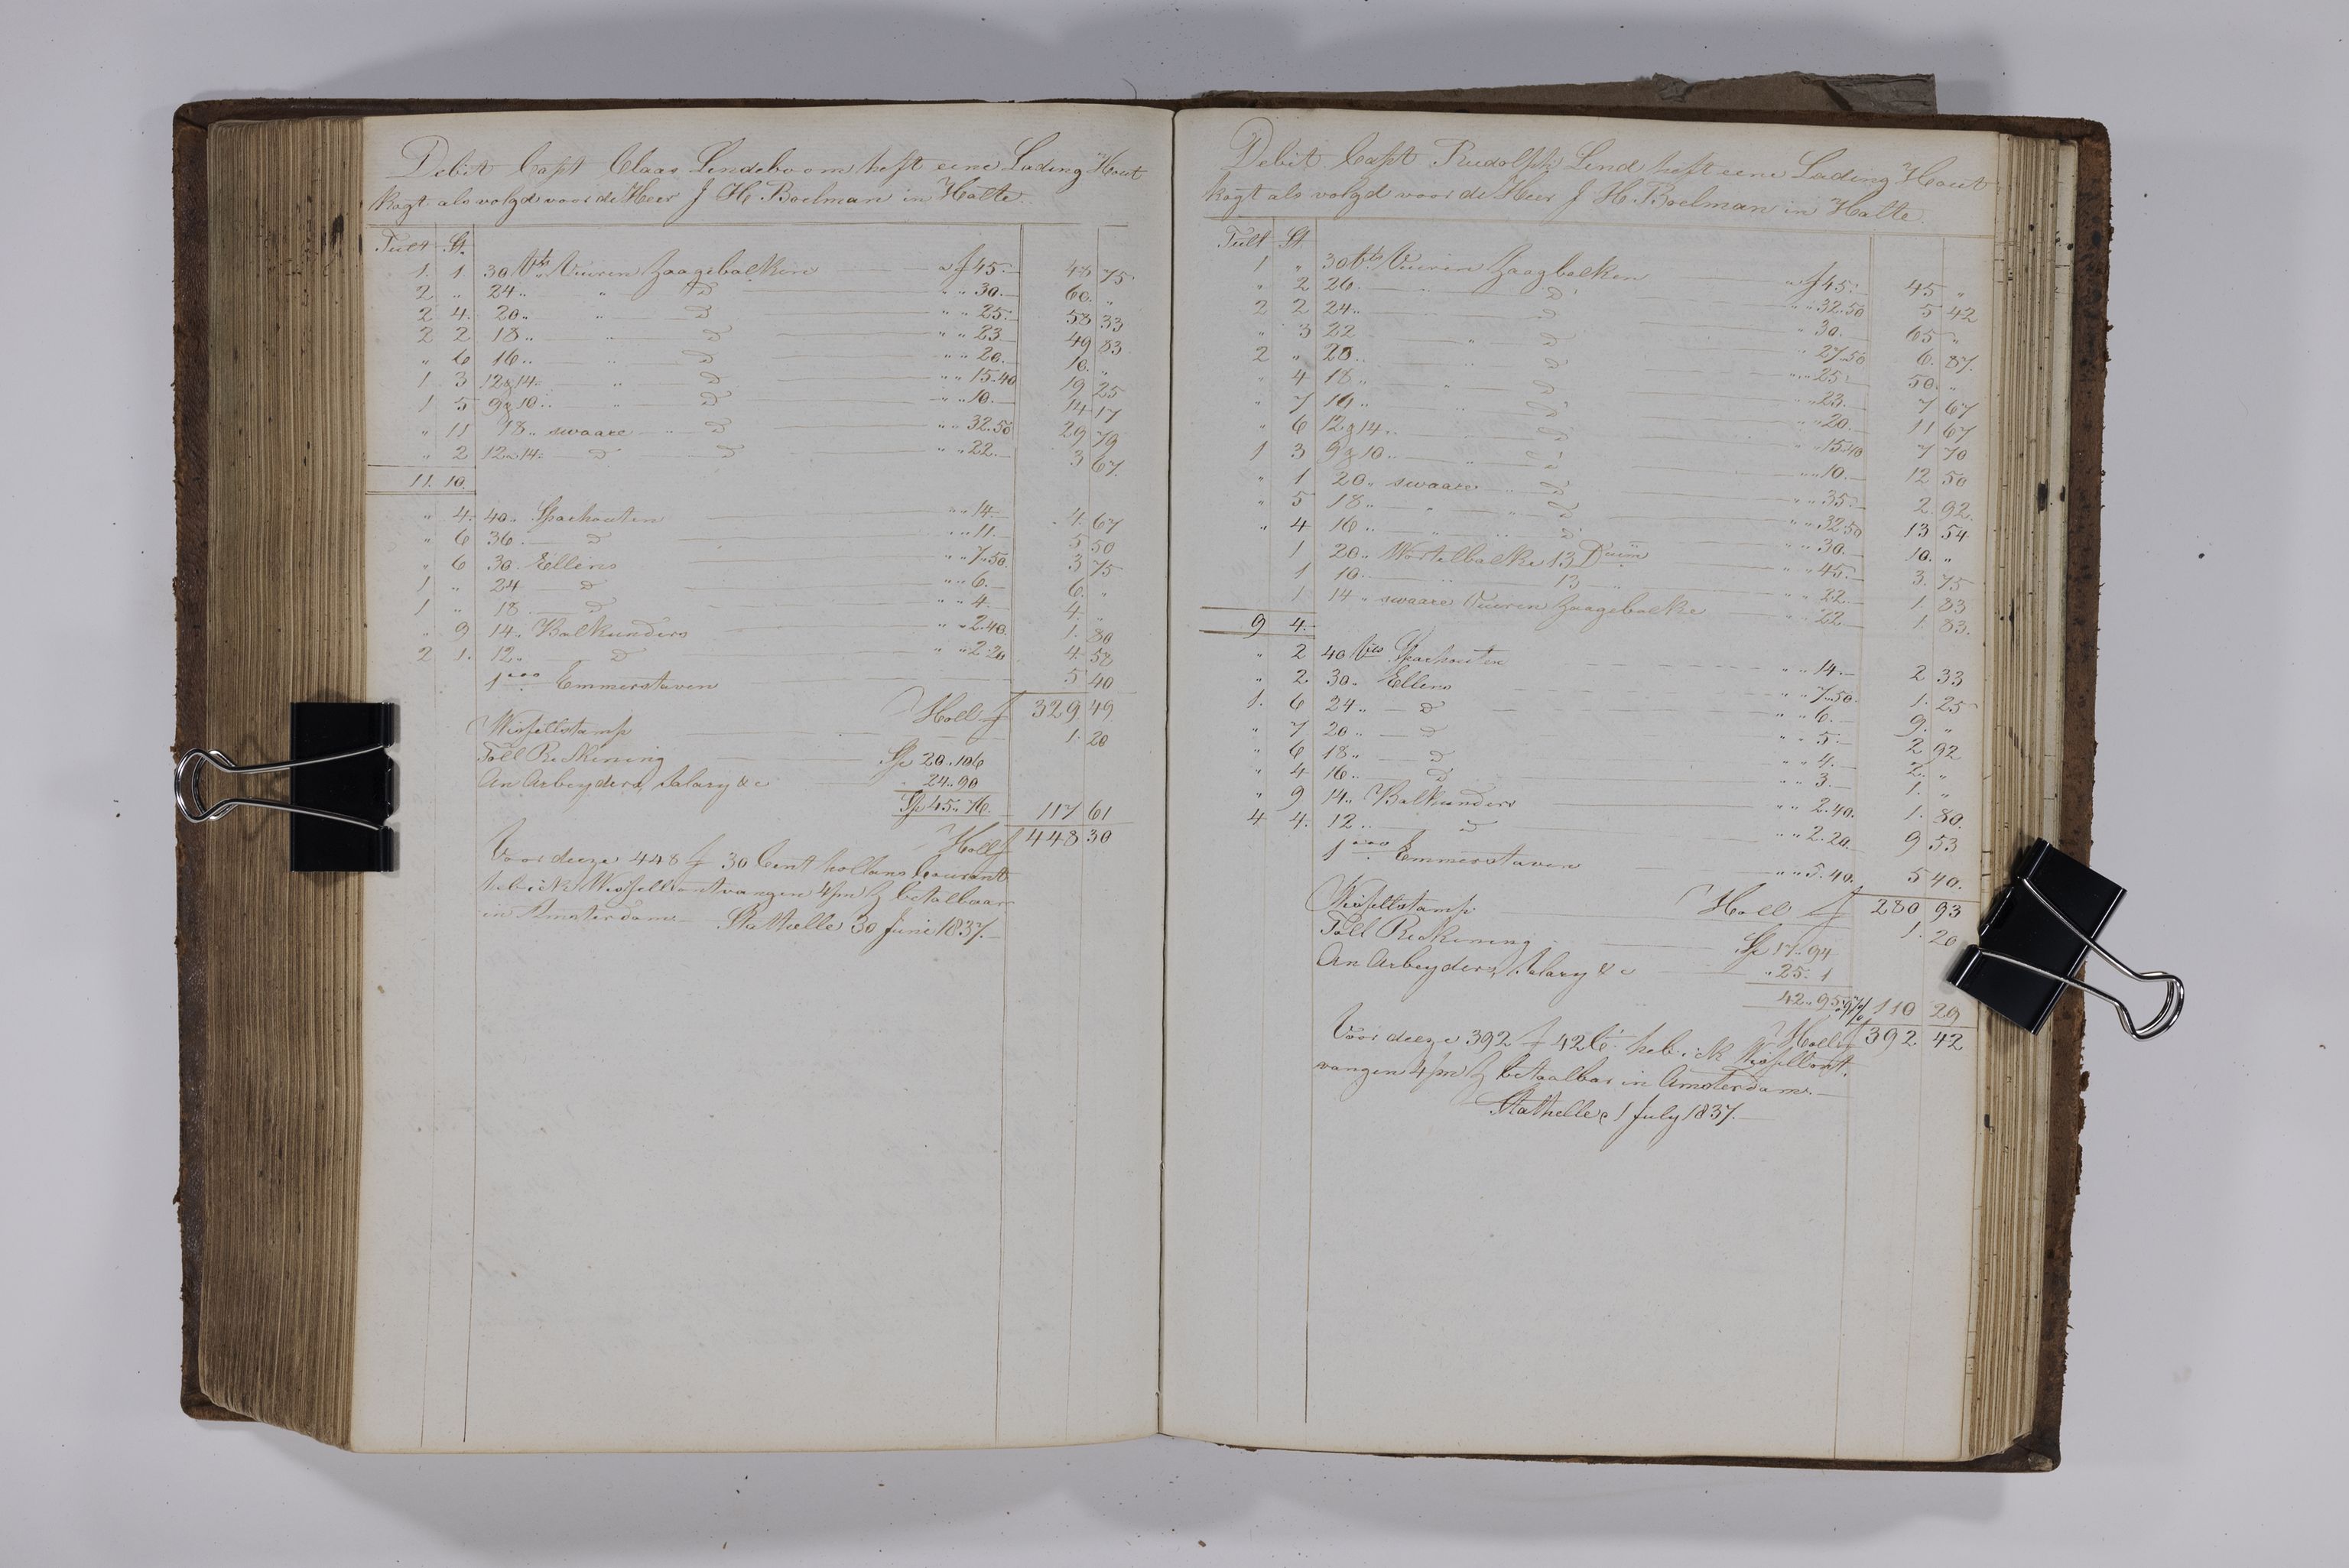 Debit Capt Claas Lindeboom heft eene Lading Hout
kogt als volgd voor de Heer J H Boelman in Halte.
Tult St.
1. 1 30 Vts Vuuren Zaagebalken a f 45.— 48 75.
2 „ 24 „ „ D „ „ 30.— 60. „
2 4. 20 „ „ D „ „ 25.— 58 33
2 2 18 „ „ D „ „ 23.— 49 83
„ 6 16 „ „ D „ „ 20.— 10. „
1 3 12 a 14 „ „ D „ „ 15.40 19 25
1 5 9 a 10 „ „ D „ „ 10.— 14 17
„ 11 18 „ swaare „ D „ „ 32.50 29 79
„ 2 12 a 14 „ D D „ „ 22.— 3 67.
11. 10.
„ 4. 40 „ Sparhouten „ „ 14.— 4. 67
„ 6 36 „ D „ „ 11.— 5 50
„ 6 30 „ Ellens „ „ 7.50. 3 75
1 „ 24 D „ „ 6.— 6. „
1 „ 18 D „ „ 4.— 4. „
„ 9 14 „ Balkunders „ „ 2.40. 1. 80
2 1. 12 „ D „ „ 2.20 4. 58
1000 Emmerstaven 5 40
Holl f 329 49
Wissellstamp 1. 20
Toll Reckening Sp 20.106
An Arbeyders, Salary &c 24.90
Sp 45.76 117 61
Holl f 448 30
Voor deeze 448 f 30 Cent hollans Courant
heb ick Wissell ontvangen 4 pm betalbaar
in Amsterdam Stathelle 30 Juni 1837.
Debit Capt Rudolph Lind heft eene Lading Hout
kogt als volgd voor de Heer J H Boelman in Halte.
Tult St.
1 „ 30 Vts Vuuren Zaagbalken „ f 45.— 45 „
„ 2 26. „ D „ „ 32.50 5 42
2 2 24 „ D „ 30.— 65 „
„ 3 22 „ D „ 27.50 6. 87.
2 „ 20 „ „ D „ „ 25.— 50. „
„ 4 18 „ „ D „ 23.— 7 67
„ 7 16 „ „ D „ „ 20.— 11 67
„ 6 12 a 14 „ „ D „ „ 15.40 7 70
1 3 9 a 10 „ „ D „ „ 10.— 12 50
„ 1 20 „ swaare „ D „ „ 35.— 2. 92.
„ 5 18 „ „ „ D „ „ 32.50 13 54
„ 4 16 „ „ „ D „ „ 30.— 10. „
1 20 „ Wortelbalke 13 Duim „ „ 45.— 3. 75
1 10 „ 13 „ „ „ 22.— 1. 83
1 14 „ swaare Vuuren Zaagebalke „ „ 22.— 1. 83.
9 4.
„ 2 40 Vts Sparhouten „ „ 14.— 2 33
„ 2 30 „ Ellens „ „ 7.50. 1. 25
1. 6 24 „ D „ „ 6.— 9. „
„ 7 20 „ D „ „ 5.— 2 92
„ 6 18 „ D „ „ 4.— 2. „
„ 4 16 „ D „ „ 3.— 1. „
„ 9 14 „ Balkunders „ „ 2.40. 1. 80.
4 4. 12 „ D „ „ 2.20. 9 53
1000 Emmerstaven „ „ 5.40. 5 40.
Holl f 280 93
Wissellstamp 1. 20
Toll Reckening Sp 17.94
An Arbeyders, Salary &c „ 25. 1
42.95 110 29
Holl f 392 42
Voor deeze 392 f 42 C. heb ick Wissell ont-
vangen 4 pm betaalbar in Amsterdam.—
Stathelle 1 July 1837.